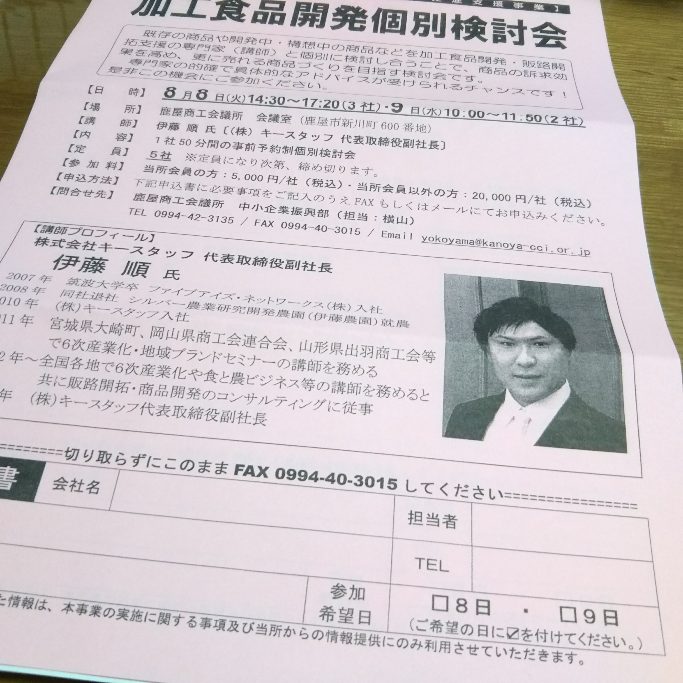 産支援事業】
加工食品開発個別検討会
既存の商品や開発中・構想中の商品などを加工食品開発・販路開
拓支援の専門家（講師）と個別に検討し合うことで、商品の訴求効
果を高め、更に売れる商品づくりを目指す検討会です。
専門家の的確で具体的なアドバイスが受けられるチャンスです！
是非この機会にご参加ください。
【日 時】 8月8日(火)14:30～17:20(3社)・9日(水)10:00～11:50(2社)
【場 所】 鹿屋商工会議所 会議室（鹿屋市新川町600番地）
【講 師】 伊藤 順 氏〔（株）キースタッフ 代表取締役副社長〕
【内 容】 1社50分間の事前予約制個別検討会
【定 員】 5社 ※定員になり次第、締め切ります。
【参加料】 当所会員の方：5,000円/社（税込）・当所会員以外の方：20,000円/社（税込）
【申込方法】 下記申込書に必要事項をご記入のうえFAXもしくはメールにてお申込みください。
【問合せ先】 鹿屋商工会議所 中小企業振興部（担当：横山）
TEL 0994-42-3135 / FAX 0994-40-3015 / Email yokoyama@kanoya-cci.or.jp
【講師プロフィール】
株式会社キースタッフ 代表取締役副社長
伊藤 順 氏
2007年 筑波大学卒 ファイブアイズ・ネットワークス(株)入社
2008年 同社退社 シルバー農業研究開発農園(伊藤農園)就農
010年 (株)キースタッフ入社
11年 宮城県大崎町、岡山県商工会連合会、山形県出羽商工会等
で6次産業化・地域ブランドセミナーの講師を務める
2年～全国各地で6次産業化や食と農ビジネス等の講師を務めると
共に販路開拓・商品開発のコンサルティングに従事
年 (株)キースタッフ代表取締役副社長
========切り取らずにこのまま FAX 0994-40-3015 してください===============
書
会社名
担当者
TEL
参加
希望日
□8日 ・ □9日
(ご希望の日に☑を付けてください。)
た情報は、本事業の実施に関する事項及び当所からの情報提供にのみ利用させていただきます。